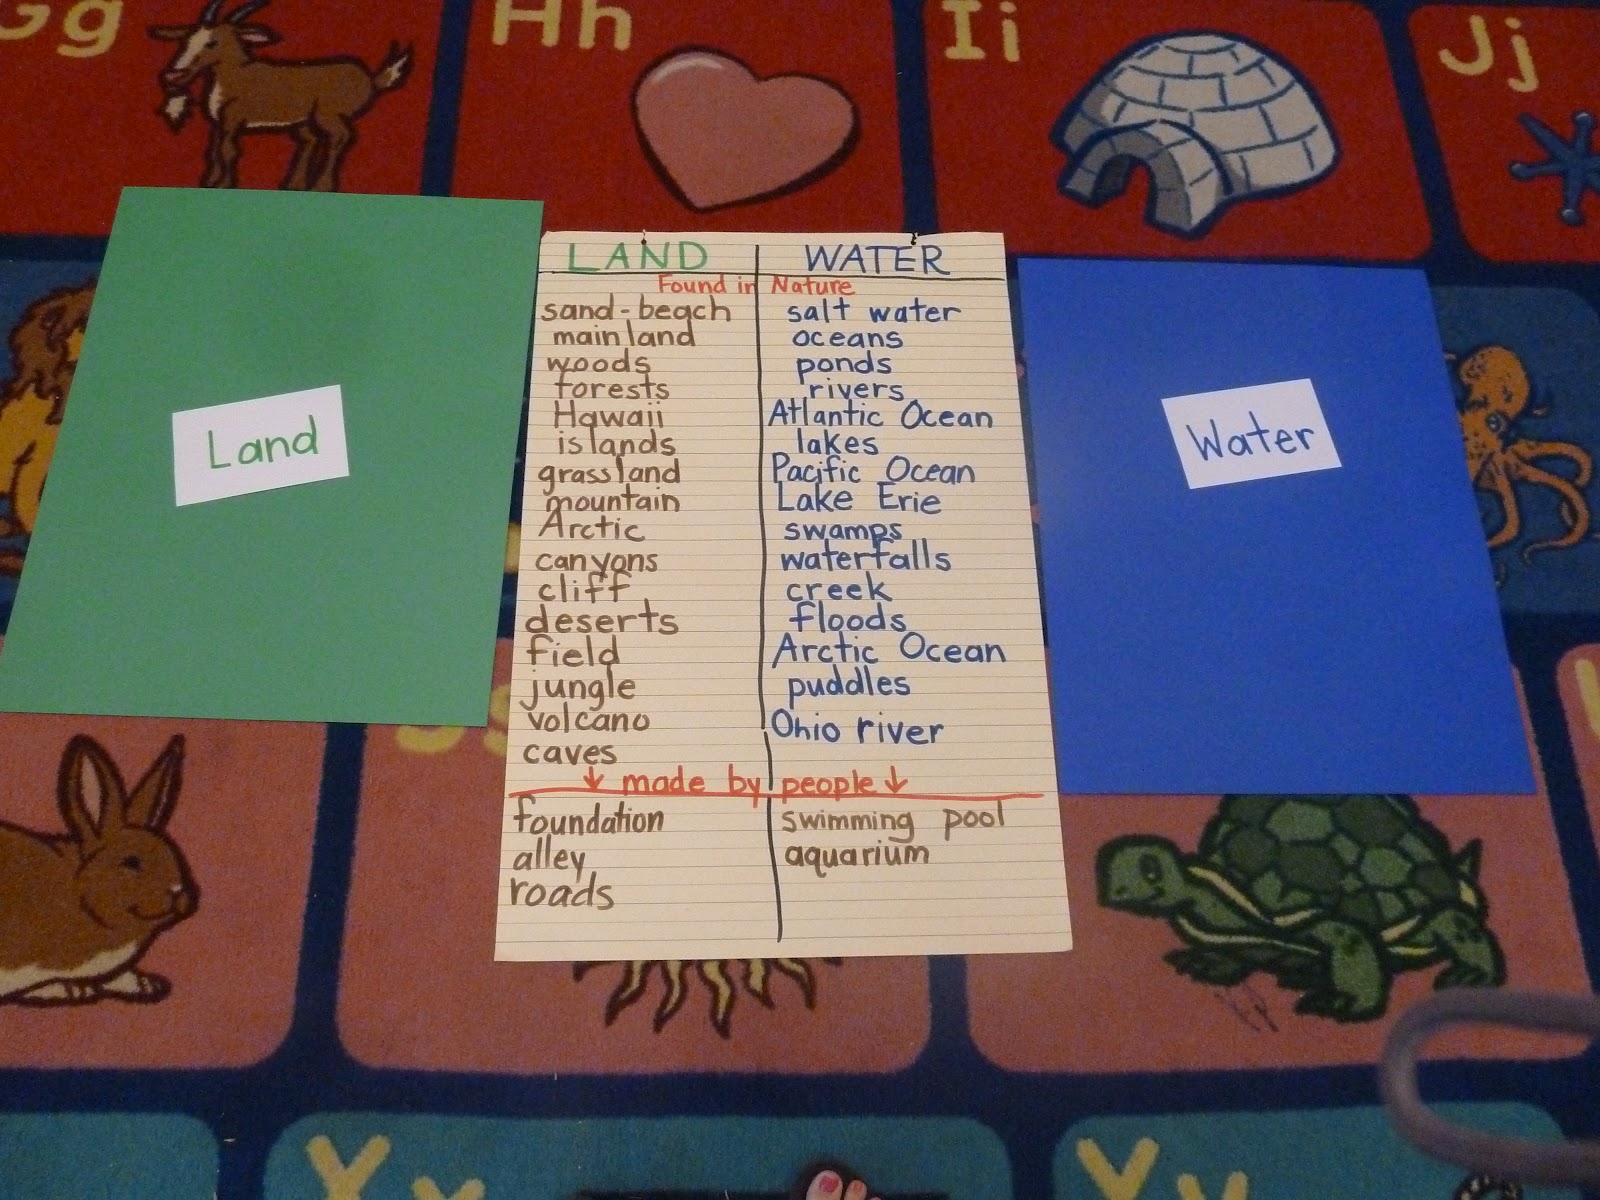 Gg
Hh
Ii
Jj
Land
LAND
WATER
Found in Nature
sand-beach
mainland
woods
forests
Hawaii
islands
grassland
mountain
Arctic
canyons
cliff
deserts
field
jungle
volcano
caves
salt water
oceans
ponds
rivers
Atlantic Ocean
lakes
Pacific Ocean
Lake Erie
swamps
waterfalls
creek
floods
Arctic Ocean
puddles
Ohio river
↓ made by people ↓
foundation
alley
roads
swimming pool
aquarium
Water
Ss
Xx
Yy